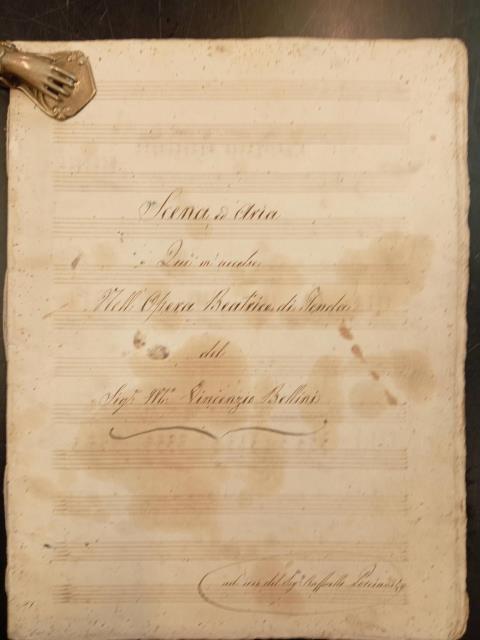 Scena, ed Aria
Qui m'accolse
Nell' Opera Beatrice di Tenda
del
Sigr. Mro. Vincenzio Bellini
ad uso del Sigr. Raffaello